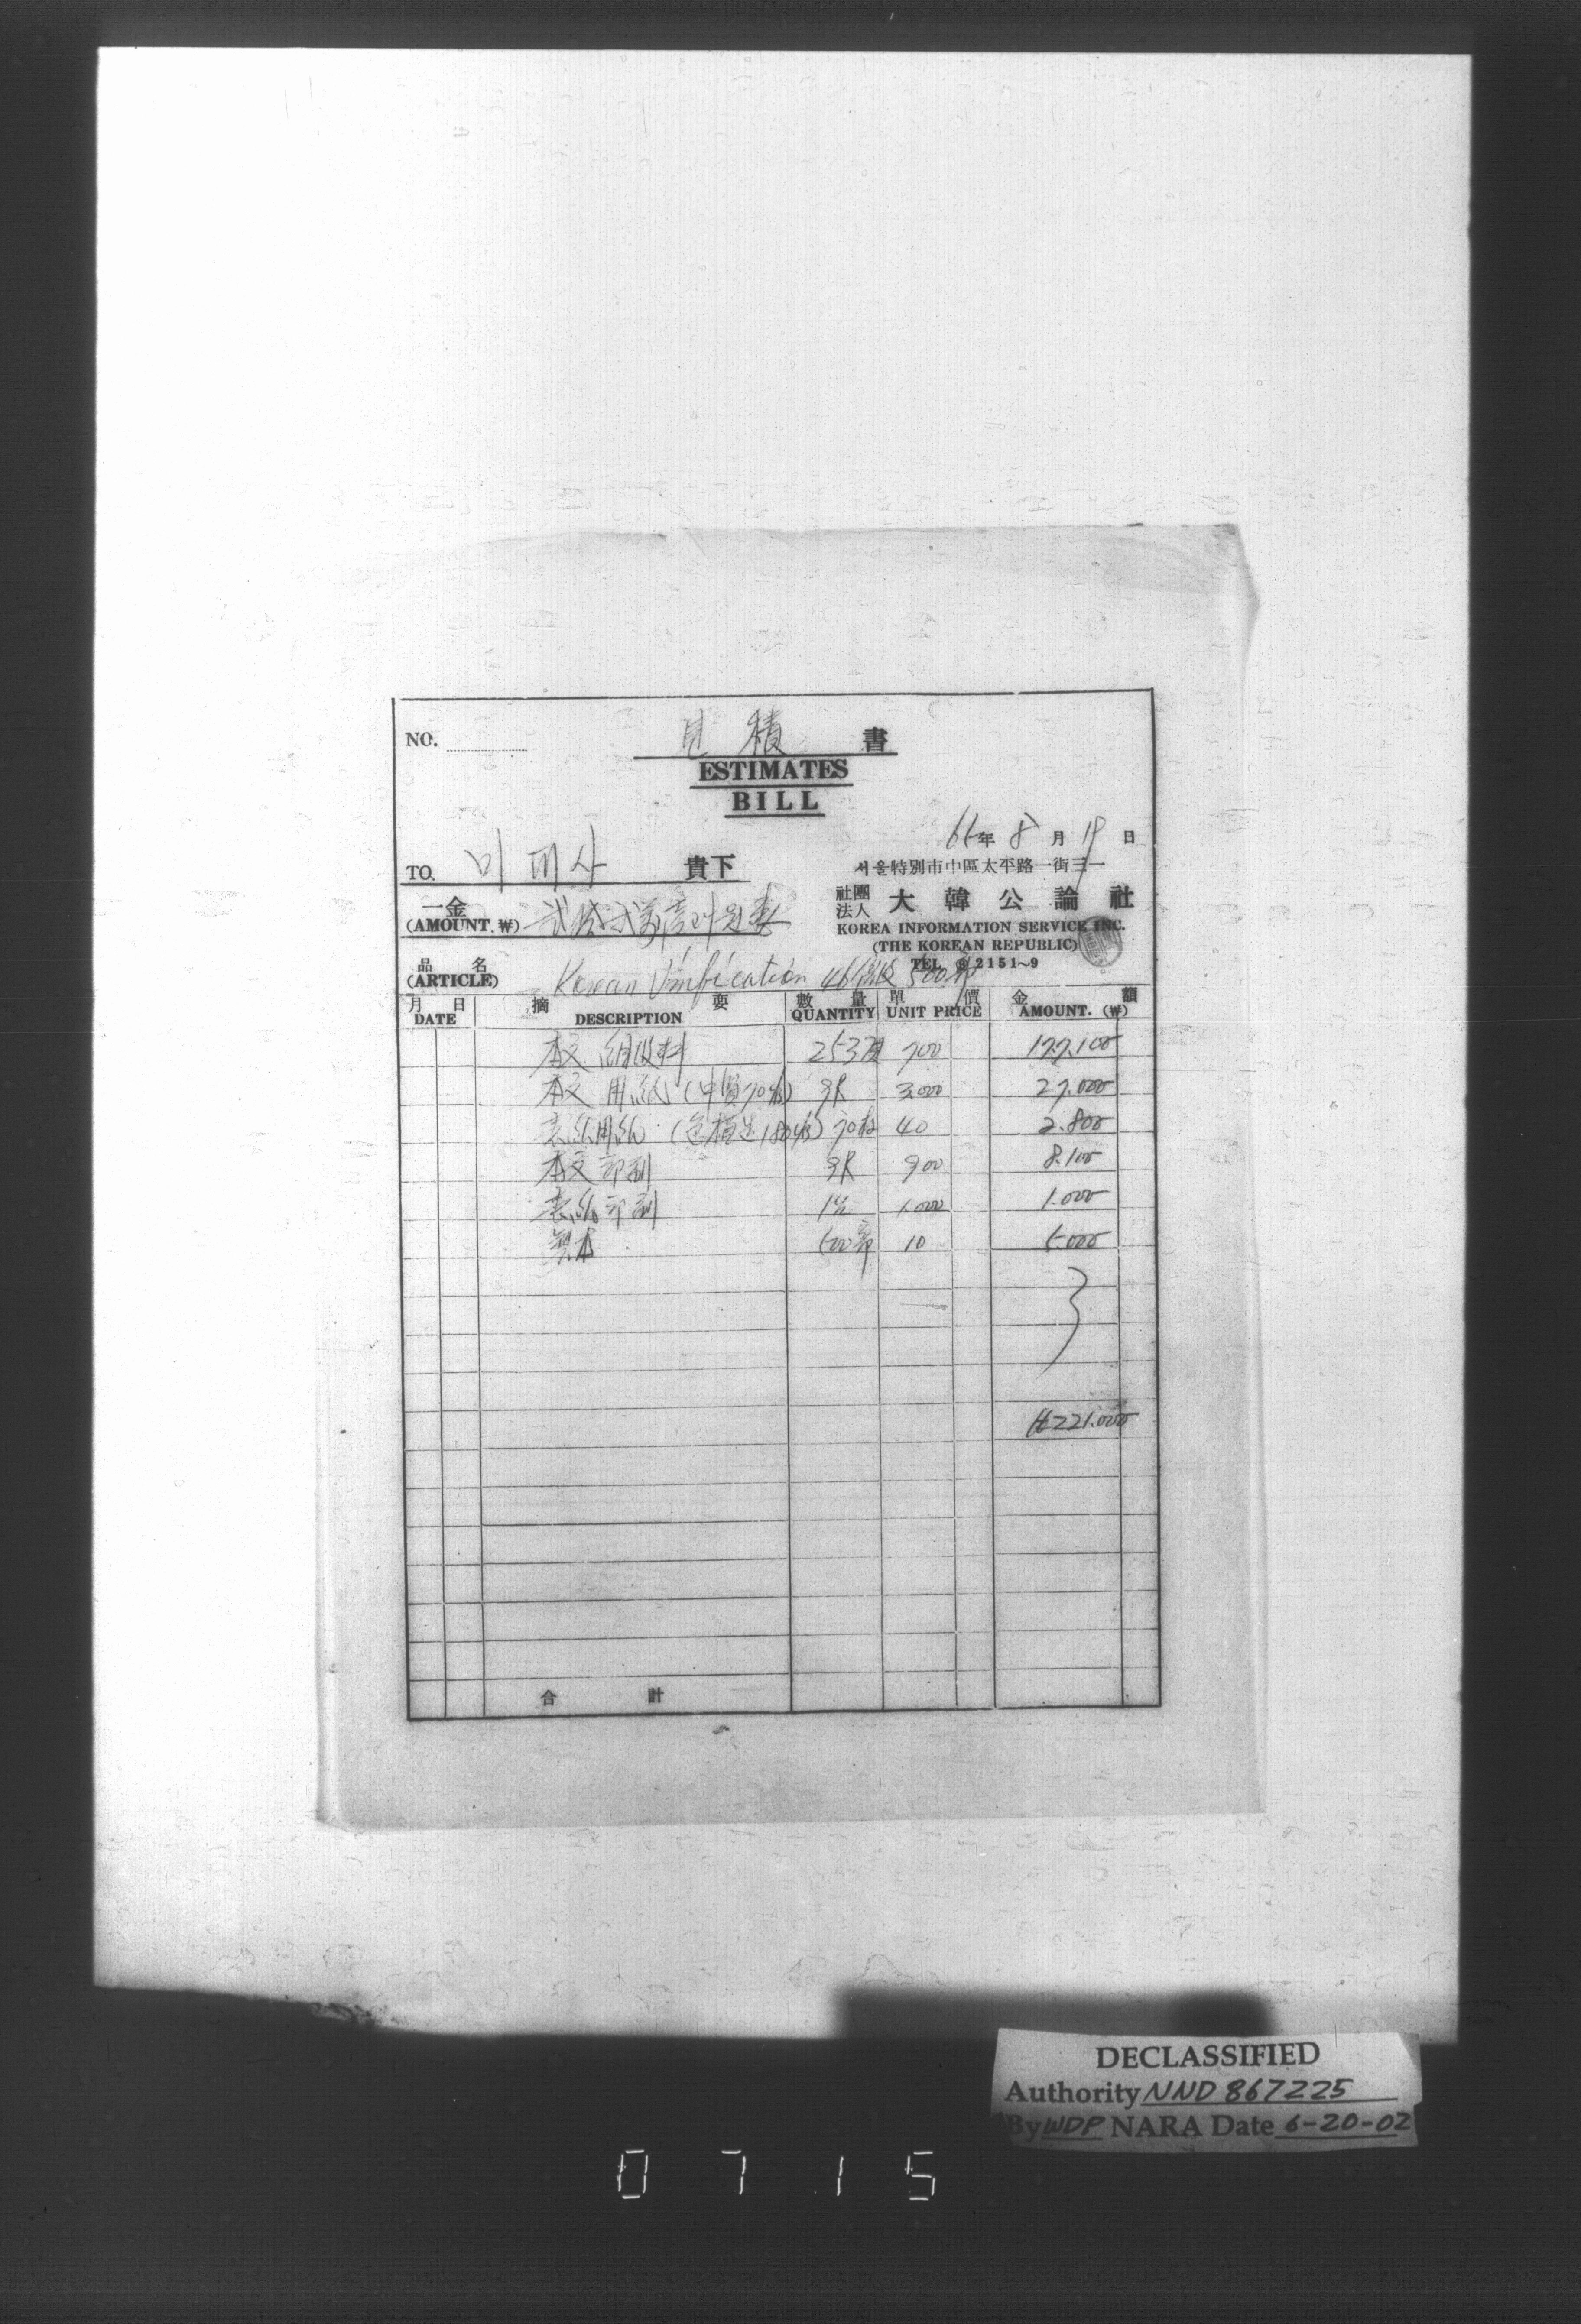 NO.
見積 書
ESTIMATES
BILL
66年 8月 19日
TO. 미대사 貴下
서울特別市中區太平路一街三一
一金
(AMOUNT. ₩)
社團法人 大韓公論社
KOREA INFORMATION SERVICE INC.
(THE KOREAN REPUBLIC)
TEL. 2151~9
品名
(ARTICLE) Korean Unification 46倍版 500部
月 日 摘要 數量 單價 金額
DATE DESCRIPTION QUANTITY UNIT PRICE AMOUNT. (₩)
本文 組版料 253頁 700 177.100
本文 用紙 (中質70#) 9R 3.000 27.000
表紙用紙 70枚 40 2.800
本文印刷 9R 900 8.100
表紙印刷 1.000 1.000
製本 500部 10 5.000
₩221.000
合計
DECLASSIFIED
Authority NND 867225
By WDP NARA Date 6-20-02
0715